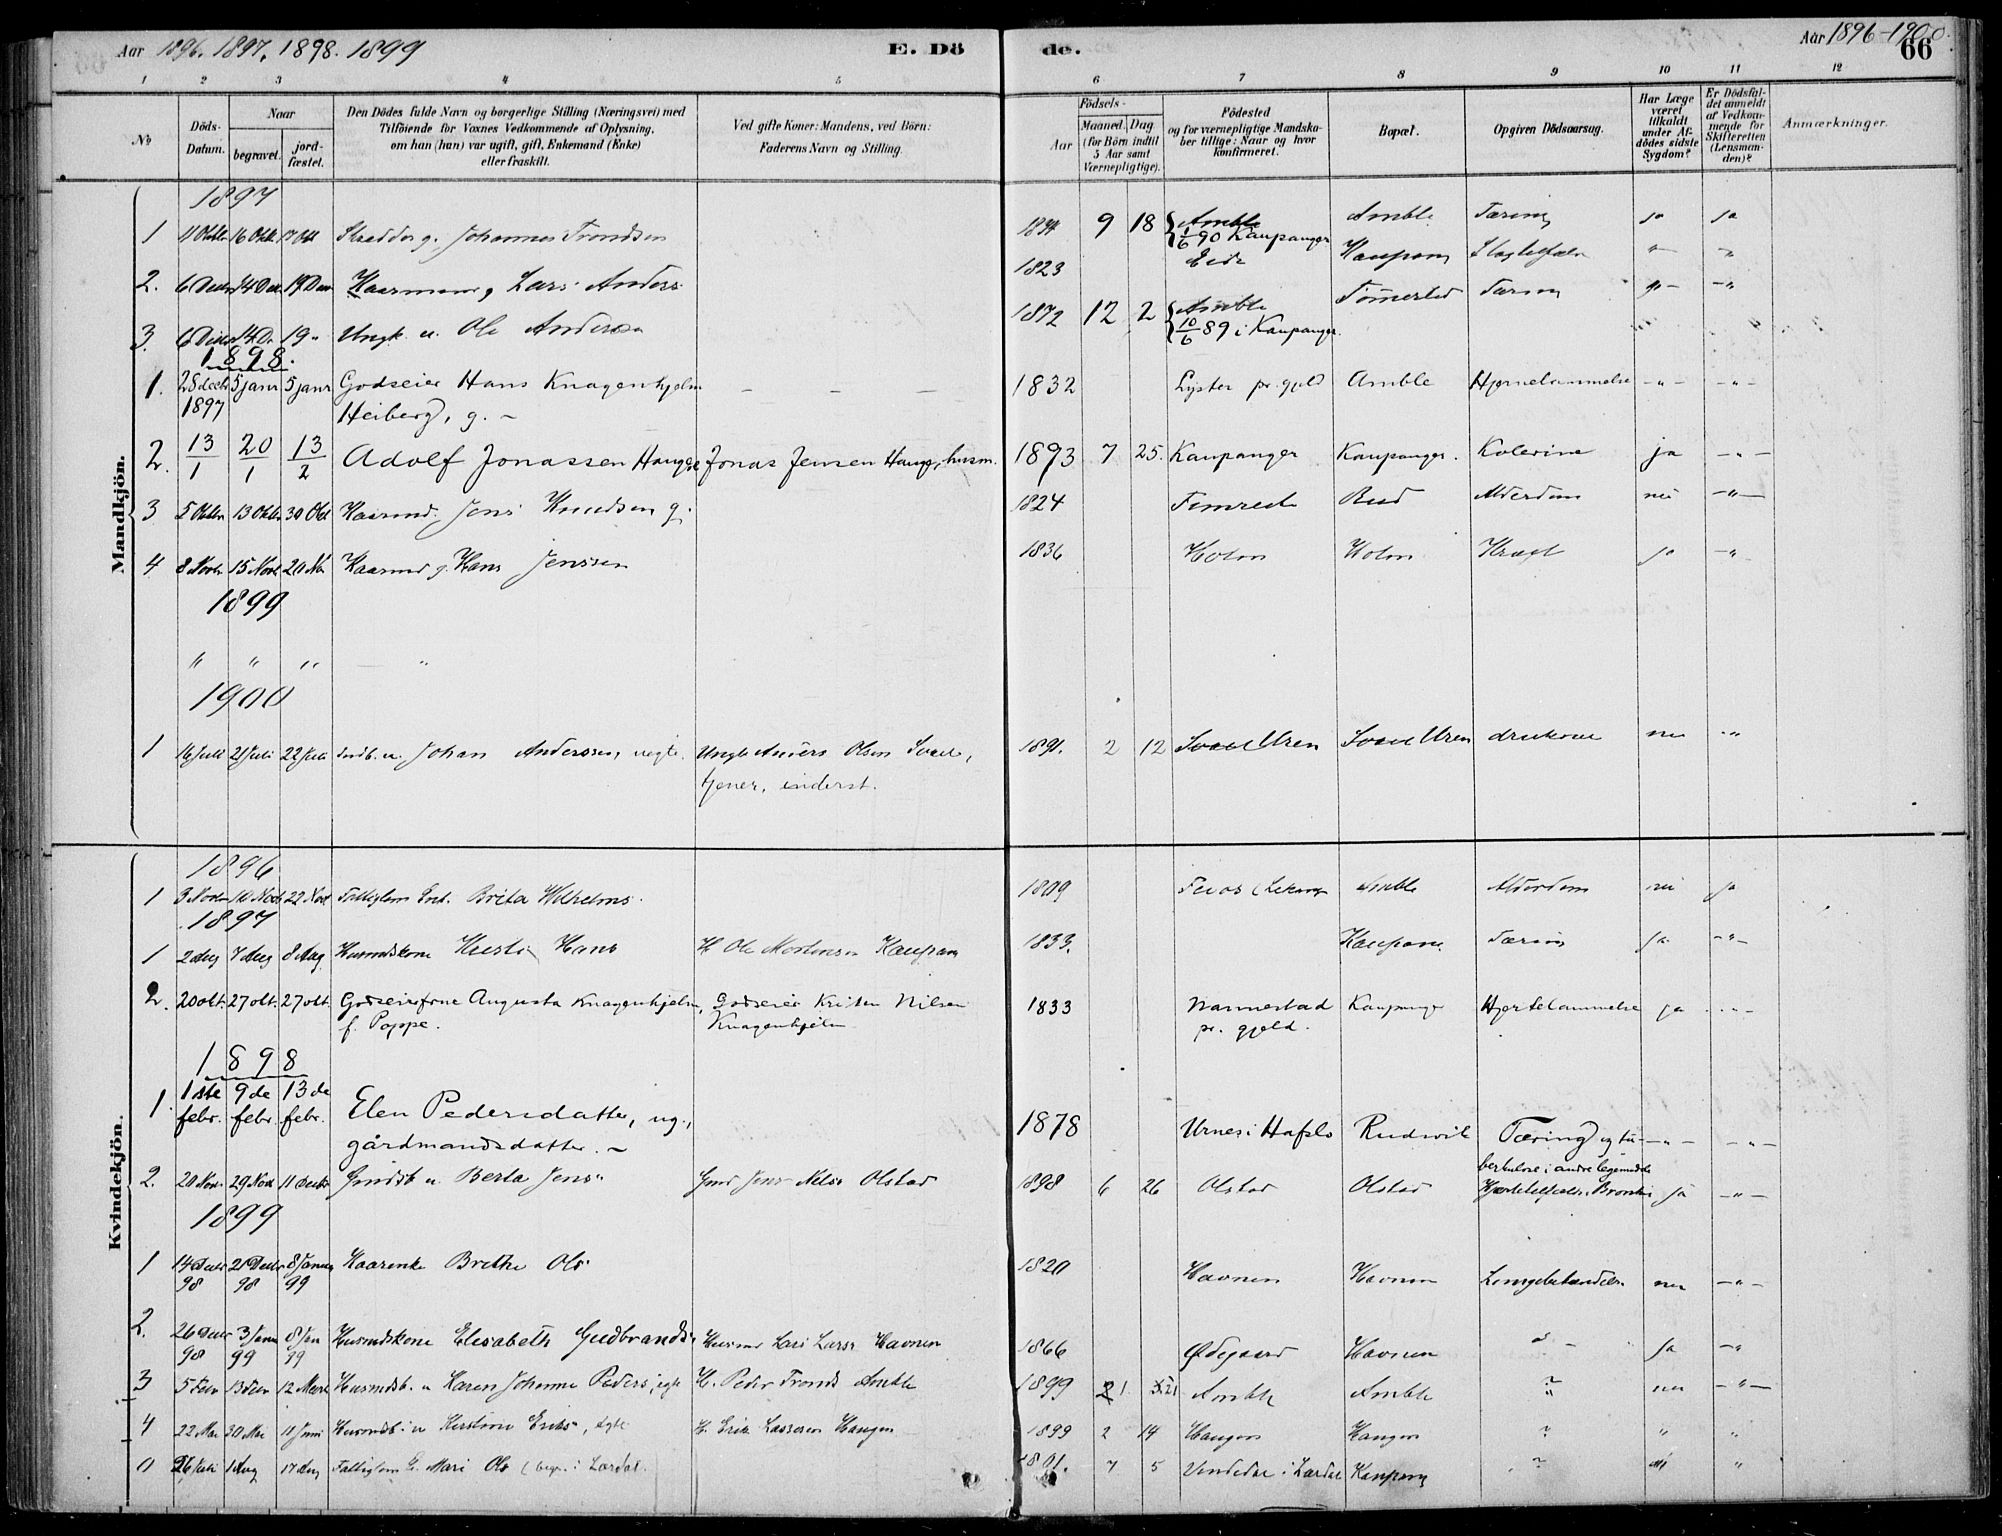 Aar 1896. 1897. 1898. 1899
E. Dö
de.
Aar 1896-1900.
66
1 2 3 4 5 6 7 8 9 10 11 12
No
Döds-
Datum.
Naar
begravet.
jord-
fæstet.
Den Dödes fulde Navn og borgerlige Stilling (Næringsvei) med
Tilföiende for Voxnes Vedkommende af Oplysning,
om han (hun) var ugift, gift, Enkemand (Enke)
eller fraskilt.
Ved gifte Koner: Mandens, ved Börn:
Faderens Navn og Stilling.
Födsels-
Aar
Maaned. Dag
(for Börn indtil
5 Aar samt
Værnepligtige).
Födested
og for værnepligtige Mandska-
ber tillige: Naar og hvor
konfirmeret.
Bopæl.
Opgiven Dödsaarsag.
Har Læge
været
tilkaldt
under Af-
dödes sidste
Sygdom?
Er Dödsfal-
det anmeldt
af Vedkom-
mende for
Skifteretten
(Lensman-
den)?
Anmærkninger.
Mandkjön.
1897
1 11 Oktbr 16 Oktb 17 Okt Skrædder g. Johannes Trondsen 9 18 Amble 1/6 90 Kaupanger Amble Tæring ja ja
2. 6 Decbr 14 Dec 19 Dec Lars Anders 1823 Eide Kaupang
3. 14 De 19 " Ungk. u. Ole Andersen 1872 12 2 Amble 10/6 89 i Kaupanger. Tæring
1898.
1. 28 decbr 1897 5 janr 5 janr Godseier Hans Knagenhjelm
Heiberg, g. - - - - 1832 Lyster pr. gjeld Amble Hjernelammelse -"- -"-
2. 13/1 20/1 13/2 Adolf Jonassen Hauge Jonas Jensen Hauge, husm. 1893 7 25. Kaupanger Kaupanger. Kolerine ja -"-
3 5 Oktbr 13 Oktbr 30 Okt Kaarmd. Jens Knudsen g. 1824 Timrede Alderdom nei -"-
4 8 Novbr 15 Novb 20 No Kaarmd g. Hans Jenssen 1836 Holm Holm Kræft ja -"-
1899
" " " "
1900
1 16 Juli 21 Juli 22 Juli u. Johan Anderssen, uegte. Ungk. Anders Olsen
tjener, inderst. 1891. 2 12 Uren Uren druknede nei "
Kvindekjön.
1896
1 3 Novbr 10 Novb 22 Nov Fattiglem Enk. Brita Wilhelms. 1809 Feios Amble Alderdom nei ja
1897
1 2 Aug 7 Aug 8 Aug. Husmdskone Hans H. Ole Mortensen Kaupang 1833. Kaupang Tæring ja -"-
2. 20 okt. 27 okt. 27 okt. Augusta Knagenhjelm,
f. Poppe. Godseier Nilsen
Knagenhjelm 1833 Nannestad
pr. gjeld. Kaupanger Hjertelammelse ja -"-
1898
1. 1ste febr. 9de febr. 13de febr. Elen Pedersdatter, ug.,
gårdmandsdatter. - 1878 Urnes i Hafslo Rudvik Tæring og tu-
berkulose i andre legemsdele -"- -"-
2. 20 Nov 29 Nov 11 Decbr u Berta Jens Gmd Jens Nilsen Olstad 1898 6 26 Olstad Olstad ja -"-
1899
1 14 Decbr 98 21 Decbr 98 8 Januar 99 Kaarenke Brethe Ols 1820 Havnen Havnen Lungebetændelse nei -"-
2. 26 Decbr 98 3 Janu 99 8 Jan 99 Husmdskone Elisabeth Gudbrands Husmd Lars Larsen Havnen 1866 Ødegaard Havnen ja -"
3 5 Febr 13 Febr 12 Marts Husmdsb. u Karen Johanne Peders, egte H. Peder Tronds Amble 1899 1 21 Amble Amble ? nei -"-
4 22 Mai 30 Mai 11 Juni Husmdsb. u Kristine Eriks, egte H. Erik Lassesen Haugen 1899 2 14 Haugen Haugen ? " "
26 Juli 1 Aug 17 Aug Fattiglem E. Mari Ols (begr. i Lærdal. 1801. 7 5 i Lærdal Kaupang ? "